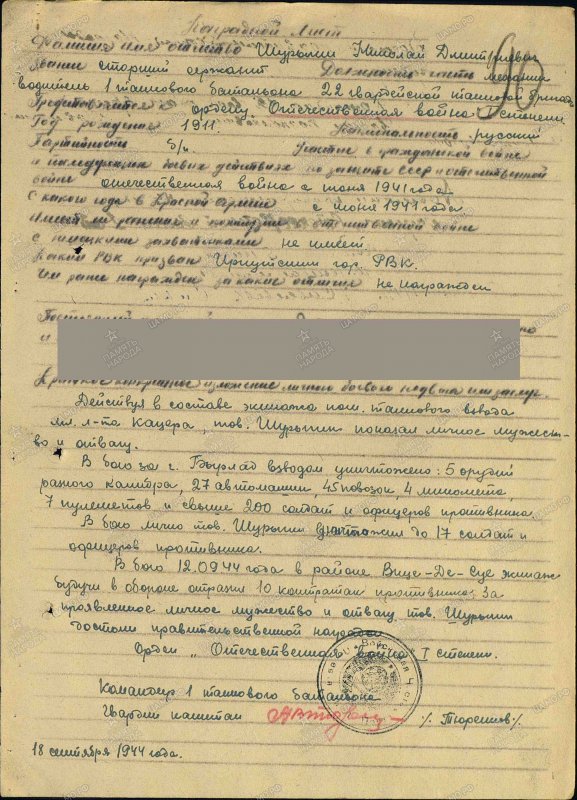 Наградной Лист
Фамилия имя отчество Шурыгин Николай Дмитриевич
Звание старший сержант Должность часть механик
водитель 1 танкового батальона 22 гвардейской танковой бригады
Представляется ордену Отечественная война степени
Год рождение 1911. Национальность русский
Партийность б/п Участие в гражданской войне
и последующих боевых действиях по защите СССР и отечественной
войне отечественная война с июня 1941 года
С какого года в Красной армии с июня 1941 года
Имеет ли ранения и контузии в отечественной войне
с немецкими захватчиками не имеет
Каким РВК призван Иркутским гор. РВК.
Чем ранее награжден за какие отличия не награжден
и
Краткое конкретное изложение личного боевого подвига или заслуг.
Действуя в составе экипажа ком. танкового взвода
мл. л-та Кацера, тов. Шурыгин показал личное мужест-
во и отвагу.
В бою за г. Бырлад взводом уничтожено: 5 орудий
разного калибра, 27 автомашин, 45 повозок, 4 миномета,
7 пулеметов и свыше 200 солдат и офицеров противника.
В бою лично тов. Шурыгин уничтожил до 17 солдат и
офицеров противника.
В бою 12.09.44 года в районе Вице-Де-Сус экипаж
будучи в обороне отразил 10 контратак противника. За
проявленное личное мужество и отвагу тов. Шурыгин
достоин правительственной награды
Орден „Отечественная война" I степени.
Командир 1 танкового батальона
Гвардии капитан /Тюреннов/
18 сентября 1944 года.
ПАМЯТЬ НАРОДА
ЦАМО.РФ